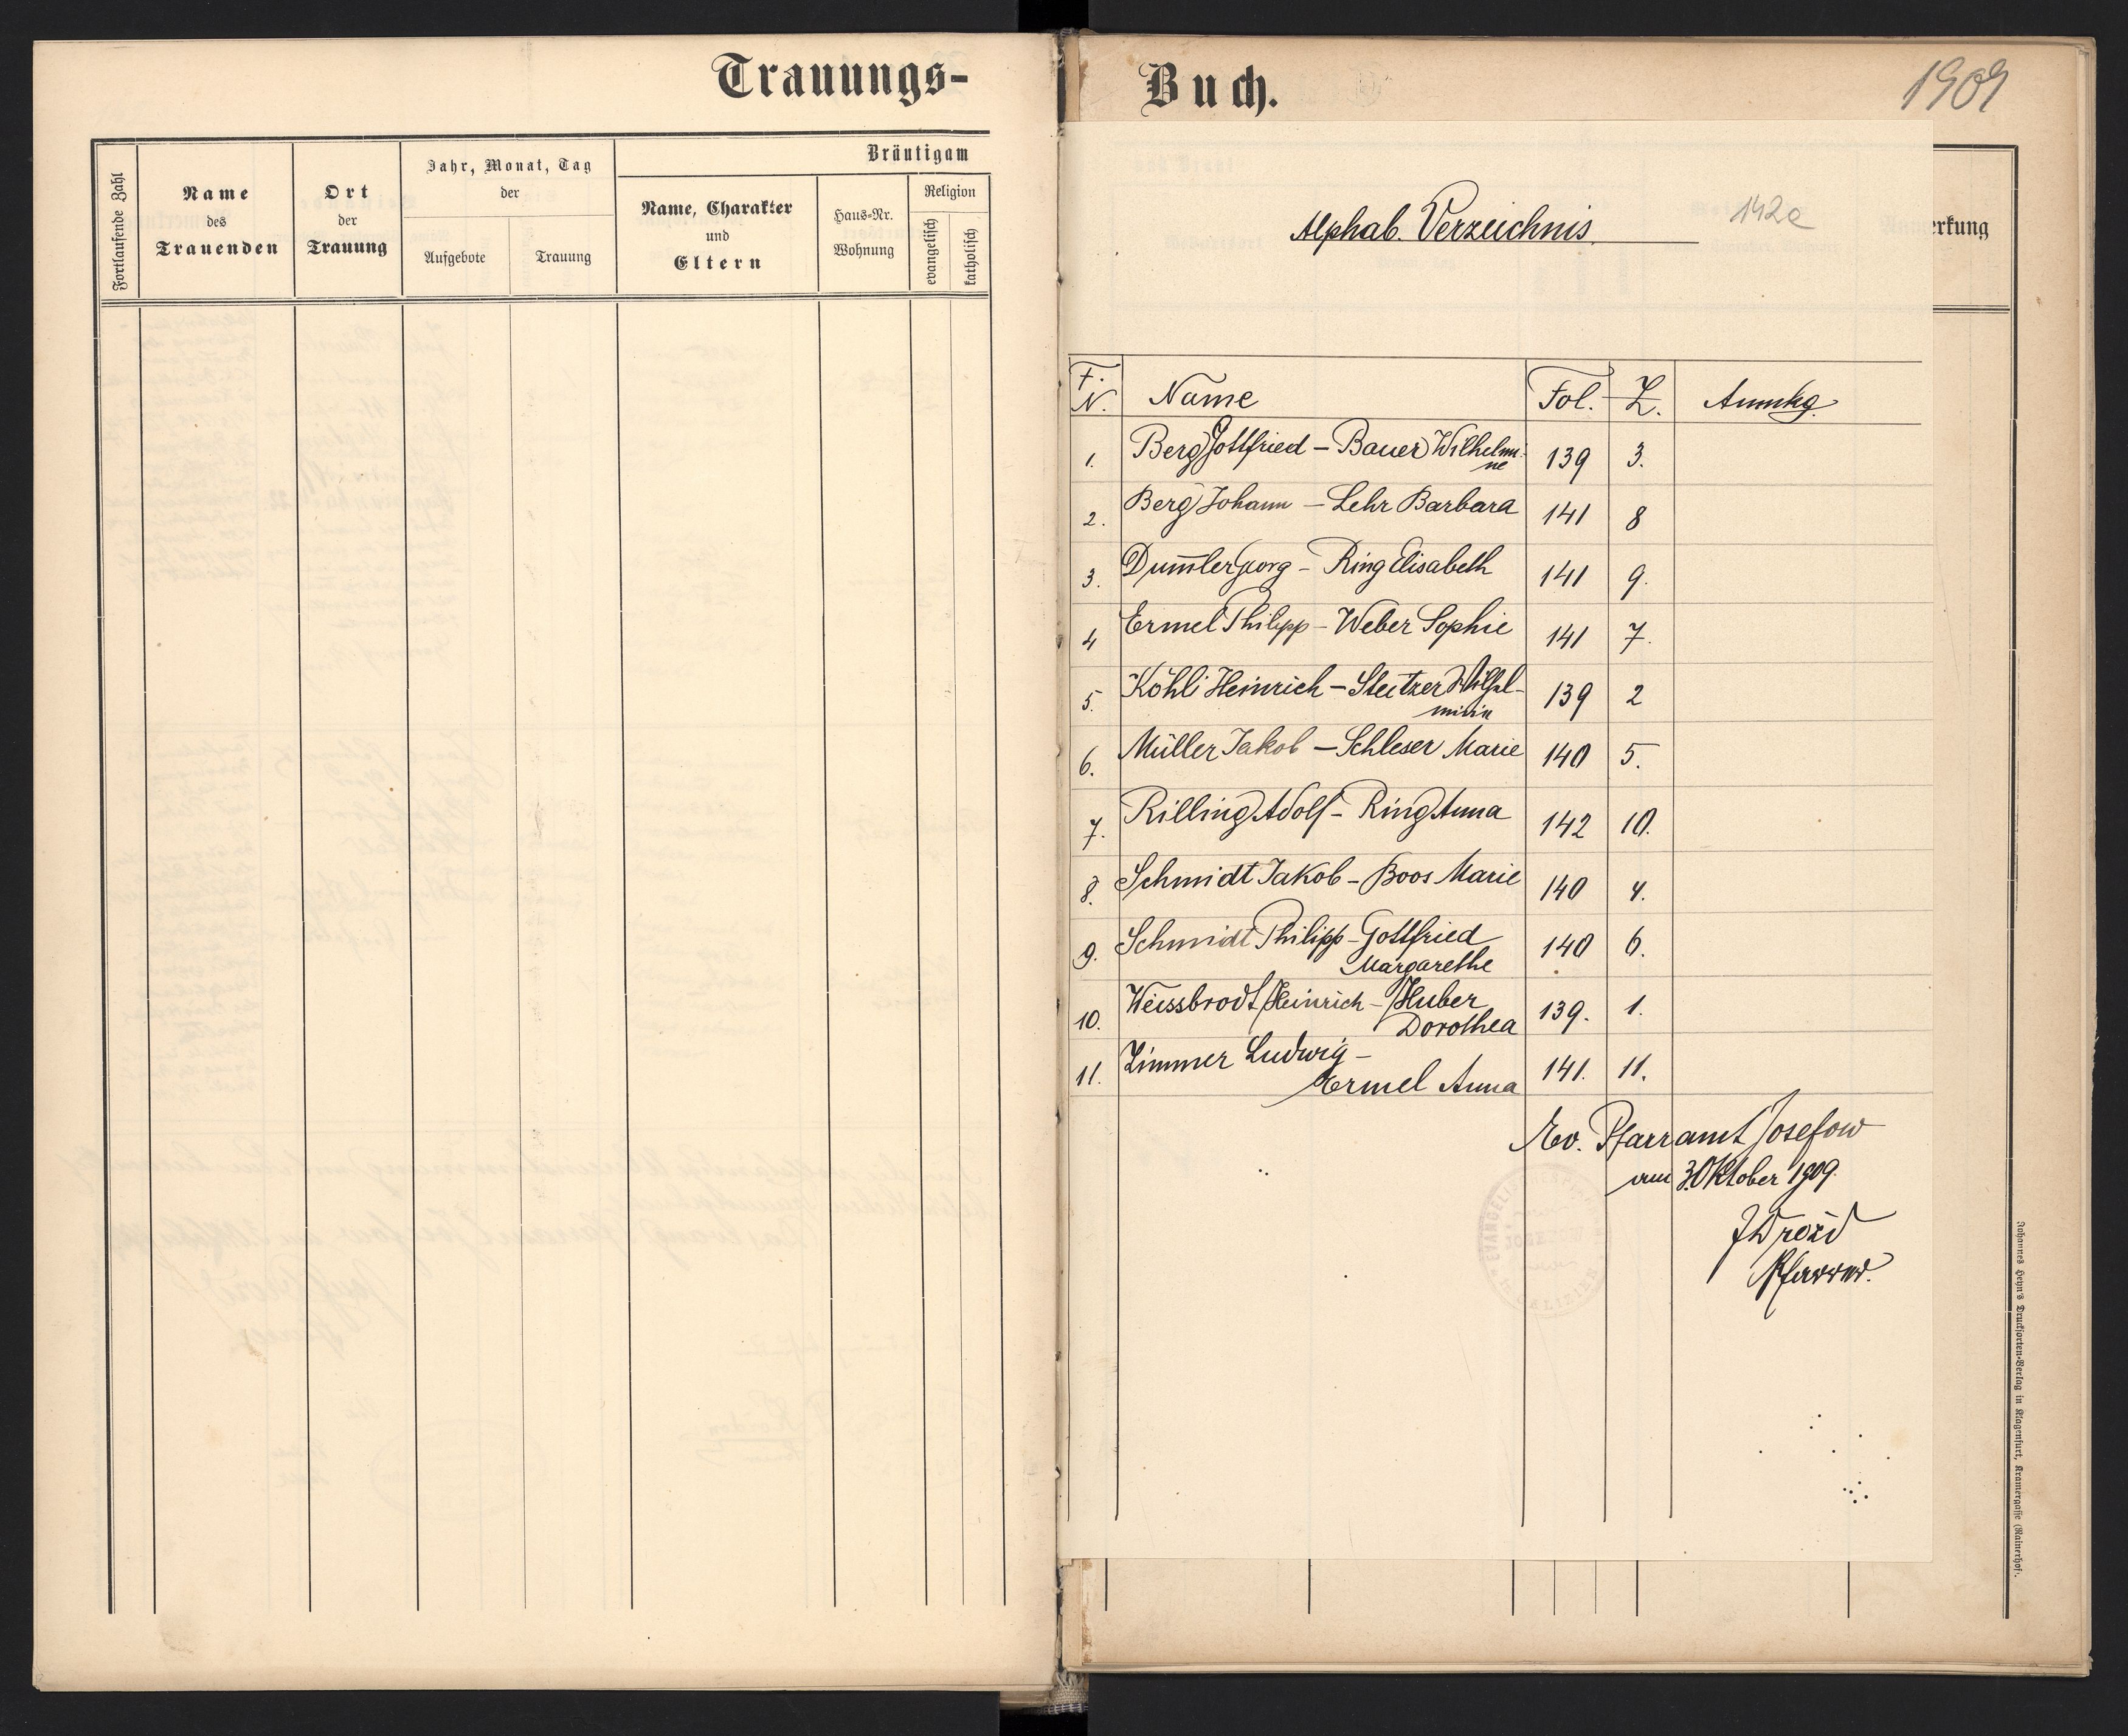 Trauungs-
Fortlaufende Zahl
Name
des
Trauenden
Ort
der
Trauung
Jahr, Monat, Tag
der
Aufgebote
Trauung
Bräutigam
Name, Charakter
und
Eltern
Haus-Nr.
Wohnung
Religion
evangelisch
katholisch
Buch.
1909
Alphab. Verzeichnis.
142a
Anmerkung
F. N. Name Fol. Z. Anmkg
1. Berg Gottfried – Bauer Wilhelmi- 139 3.
ne
2. Berg Johann – Lehr Barbara 141 8
3. Dum̅ler Georg – Ring Elisabeth 141 9.
4 Ermel Philipp – Weber Sophie 141 7.
5. Köhli Heinrich – Steitzer Wilhel- 139 2
mine
6. Müller Jakob – Schleser Marie 140 5.
7. Rilling Adolf – Ring Anna 142 10.
8. Schmidt Jakob – Boos Marie 140 4.
9. Schmidt Philipp – Gottfried 140 6.
Margarethe
10. Weissbrodt Heinrich – Huber 139. 1.
Dorothea
11. Zimmer Ludwig – 141. 11.
Ermel Anna
Ev. Pfarramt Josefow
am 3. Oktober 1909.
J Drozd
Pfarrer.
Johannes Heyn's Drucksorten-Verlag in Klagenfurt, Kramergasse (Rainerhof).